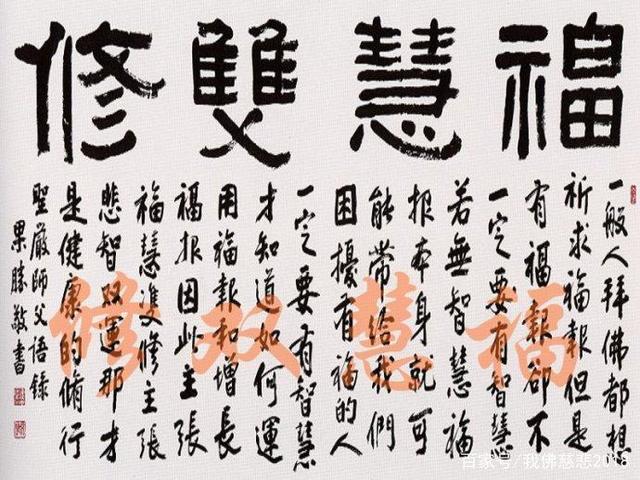 福慧雙修
一般人拜佛都想
祈求福報但是
有福報卻不
一定要有智慧
若無智慧福
报本身就可
能帶給我們
困擾有福的人
一定要有智慧
才知道如何運
用福報和增長
福报因此主張
福慧雙修主張
悲智双運那才
是健康的脩行
聖嚴師父語錄
果勝敬書
福慧双修
百家号/我佛慈悲2018